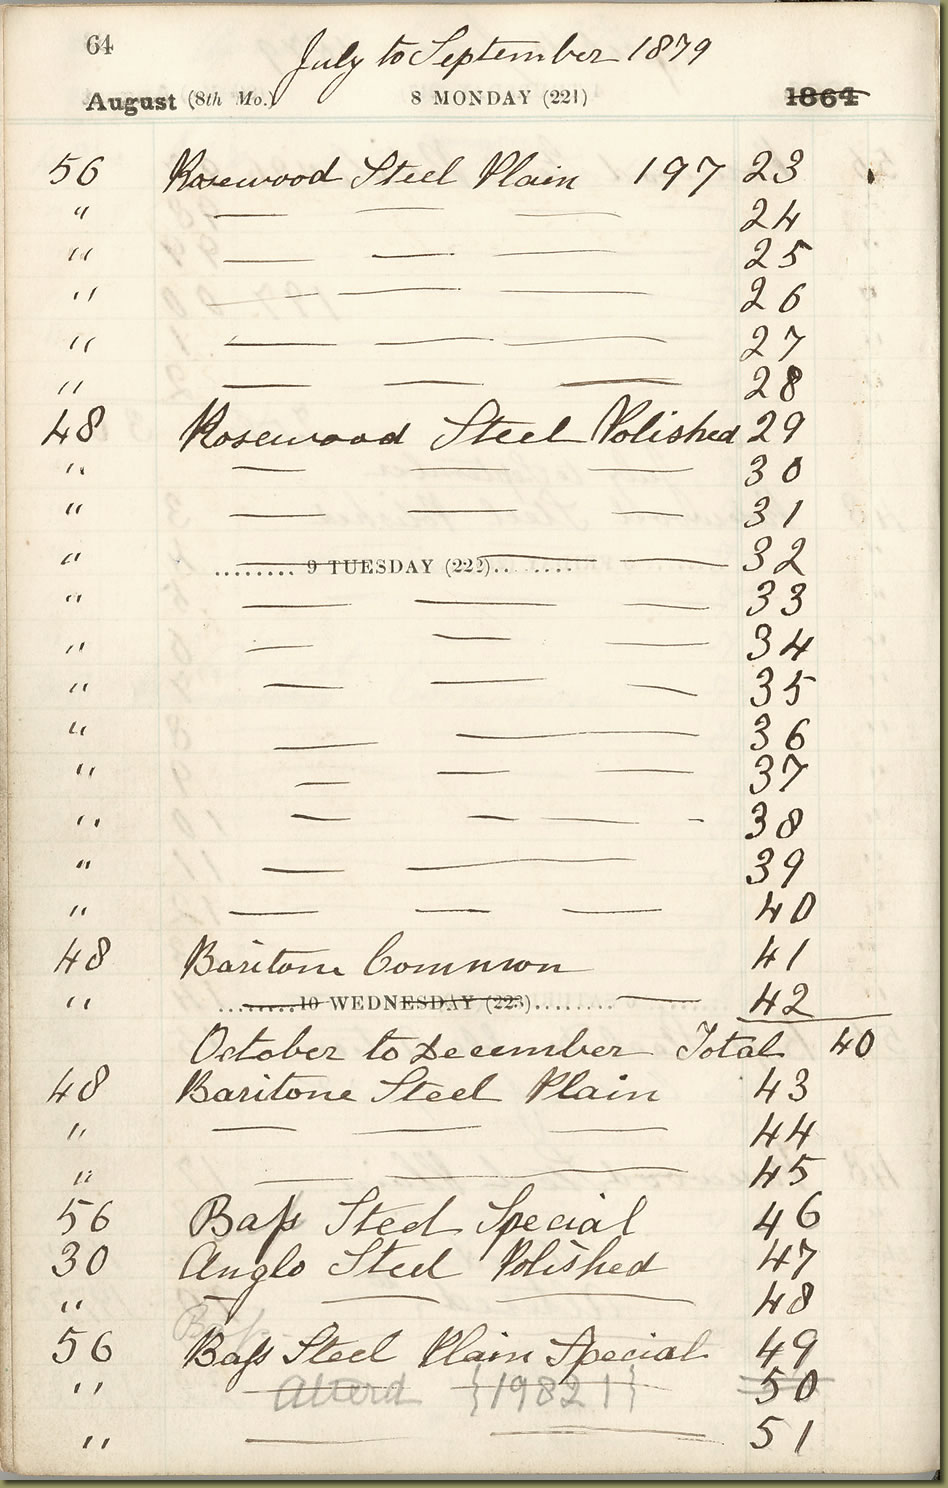 64
July to September 1879
August (8th Mo.) 8 MONDAY (221) 1864
56 Rosewood Steel Plain 197 23
" — — — 24
" — — — 25
" — — — 26
" — — — 27
" — — — 28
48 Rosewood Steel Polished 29
" — — — 30
" — — — 31
" ........ 9 TUESDAY (222)........ — 32
" — — — 33
" — — — 34
" — — — 35
" — — 36
" — — — 37
" — — — - 38
" — — 39
" — — — 40
48 Baritone Common 41
" ........10 WEDNESDAY (223)........ — 42
October to December Total 40
48 Baritone Steel Plain 43
" — — — 44
" — — 45
56 Baſs Steel Special 46
30 Anglo Steel Polished 47
" — — — 48
Baſs
56 Baſs Steel Plain Special 49
" Alterd {19821} 50
" — — 51